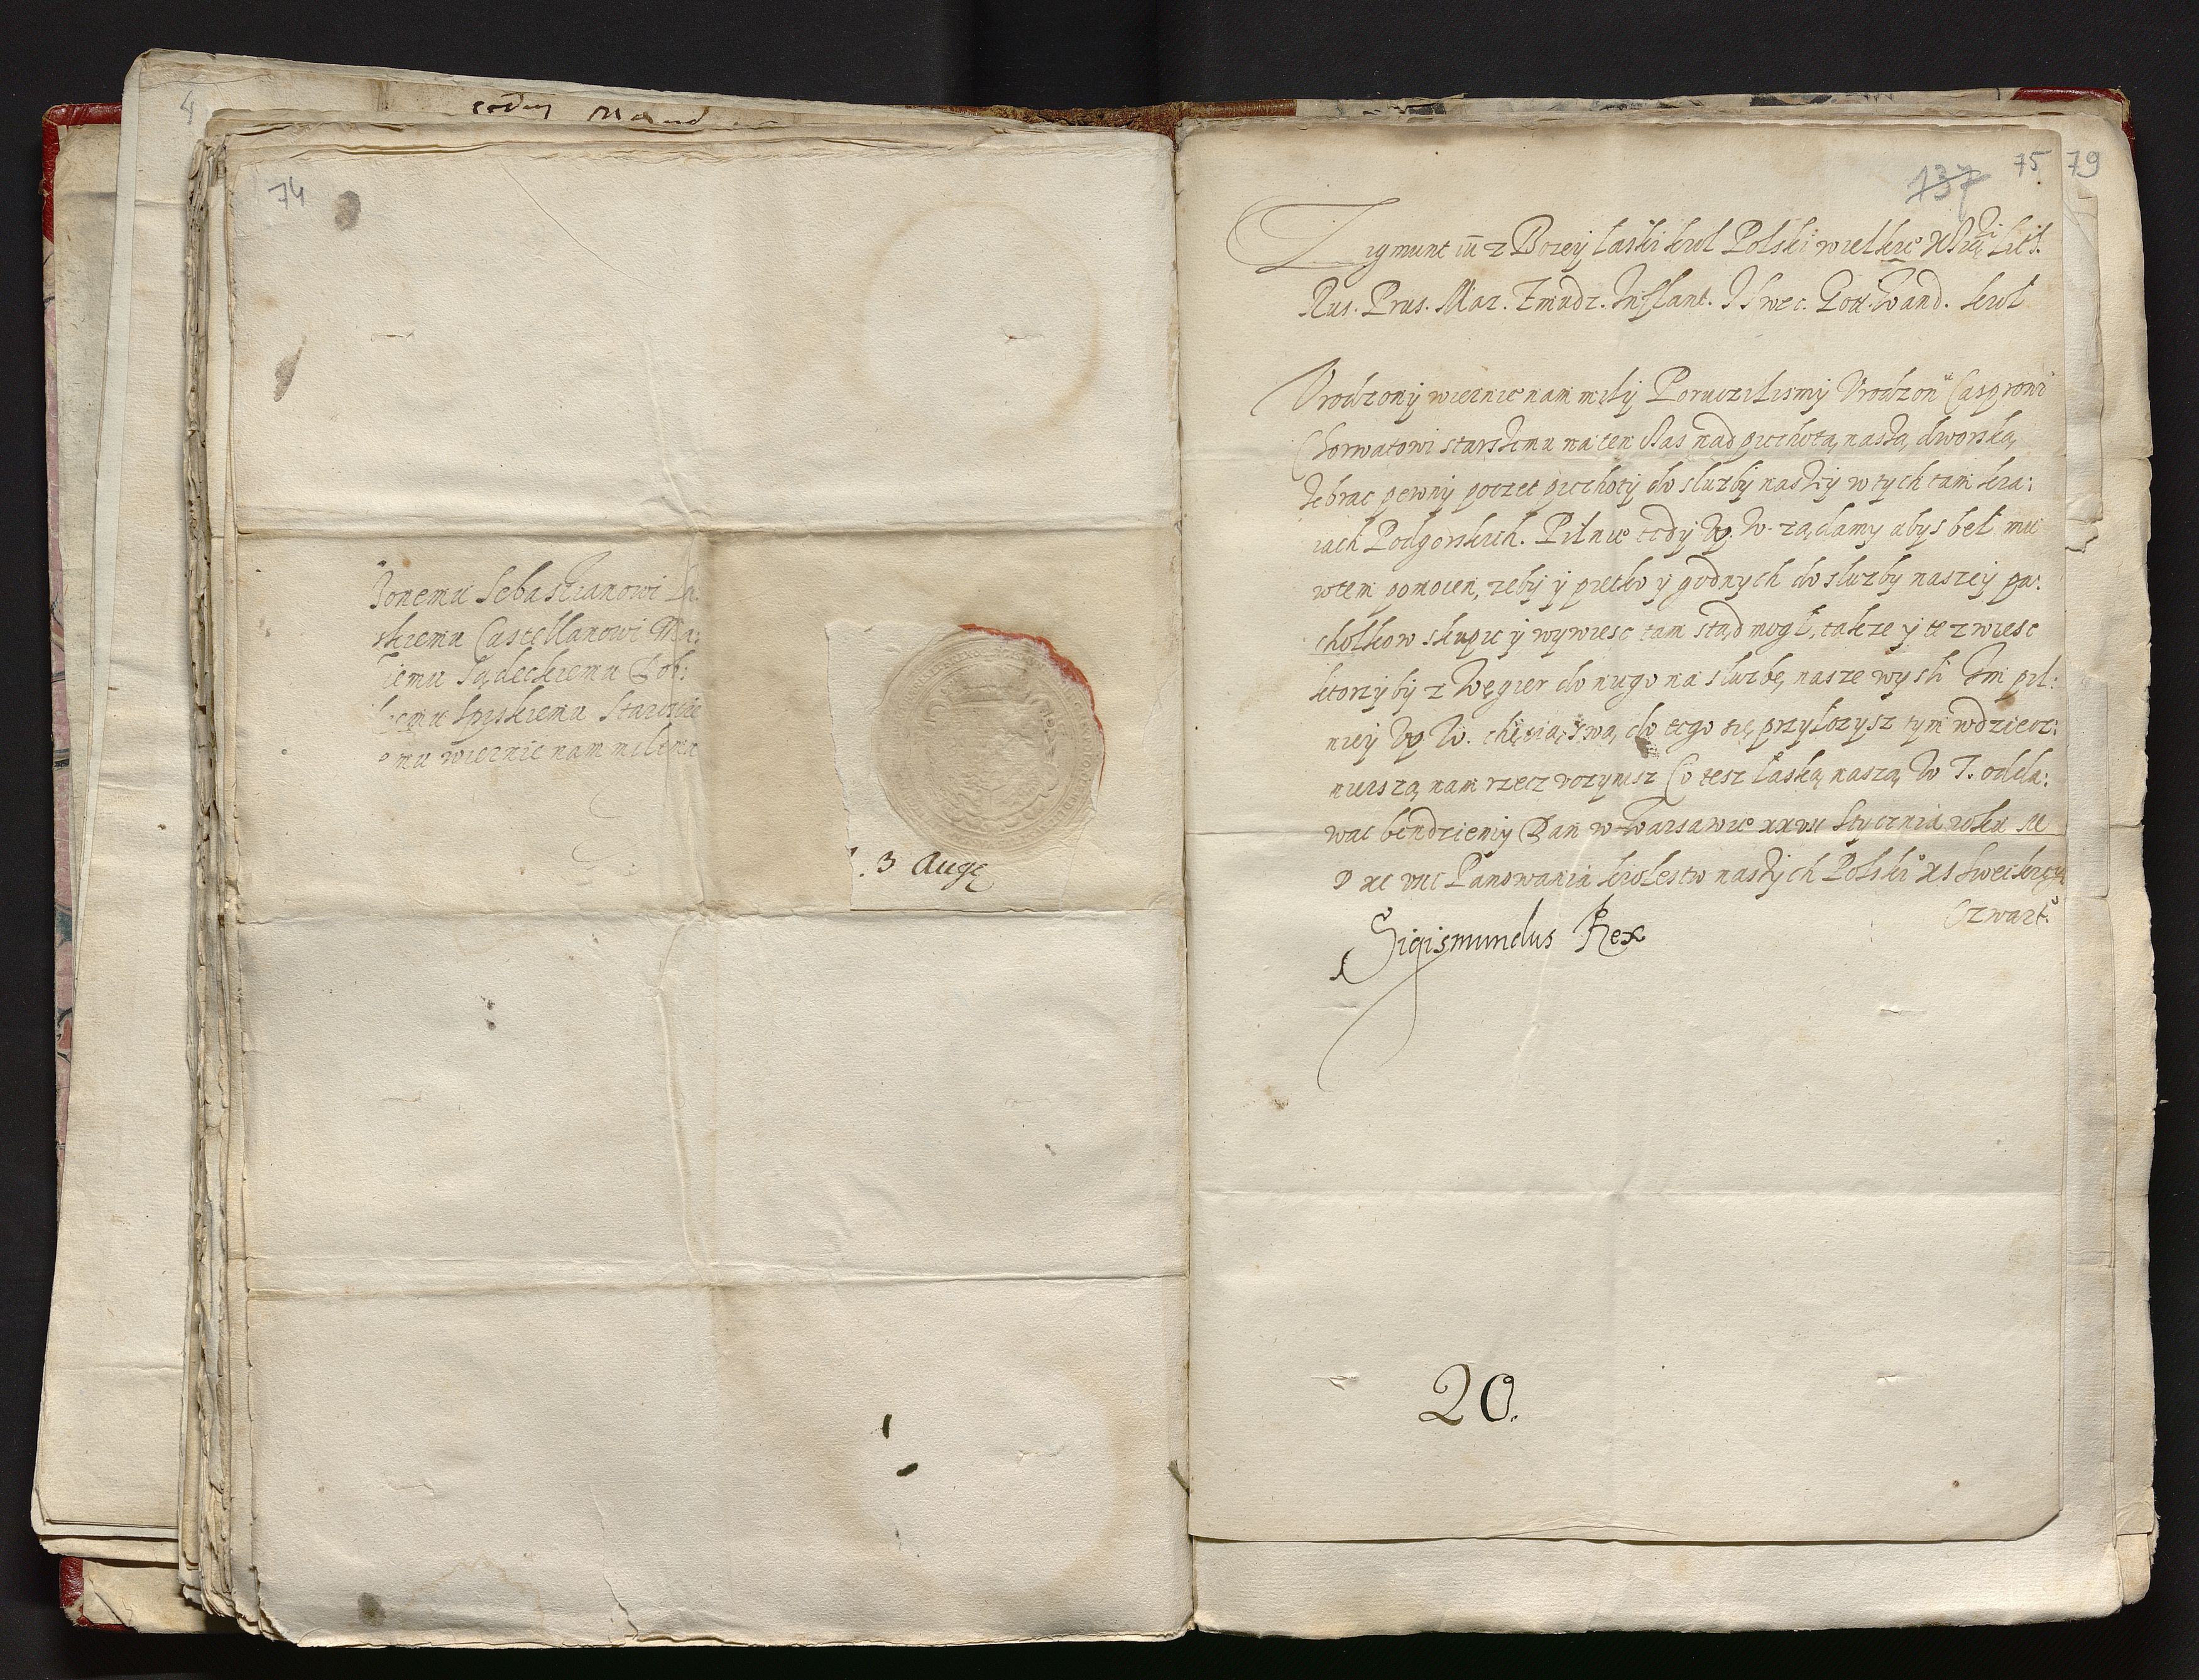 4
eodem
74
zonemu Sebastianowi Lu:
skiemu Castellanowi Ma:
iemu Sądeckiemu Dob:
iemu Spiskiemu Staroscie
emu wiernie nam milemu
. 3 Aug
137
75
79
Zigmunt iii z Bozey łaski krol Polski wielkie Xsię Lit.
Rus. Prus. Maz. Zmudz. Inflant. I Swec. Gott. Wand. krol
Vrodzony wiernie nam miły Poruczilismy Vrodzon Casprowi
Chorwatowi starszemu na ten czas nad piechotą naszą dworską
zebrac pewny poczet piechoty do sluzby naszey w tych tam kra:
iach Podgorskich. Pilnie tedy W. ządamy abys beł mu
wtem pomocen, zeby y prętko y godnych do sluzby naszey pa:
chołkow skupic y wywiesc tam stąd mogł, takze y te zwiesc
ktorzyby z Węgier do niego na sluzbę nasze wysli Im pil:
niey W. chęcią swą do tego się przyłozysz tym wdziecz:
nieiszą nam rzecz vczynisz Co tesz łaską naszą W T. odda:
wac bendziemy Dan w Warsawie xxvii Stycznia roku M
D xc viii Panowania krolestw naszych Polskie xi Sweckiego
Czwart.
Sigismundus Rex
20.